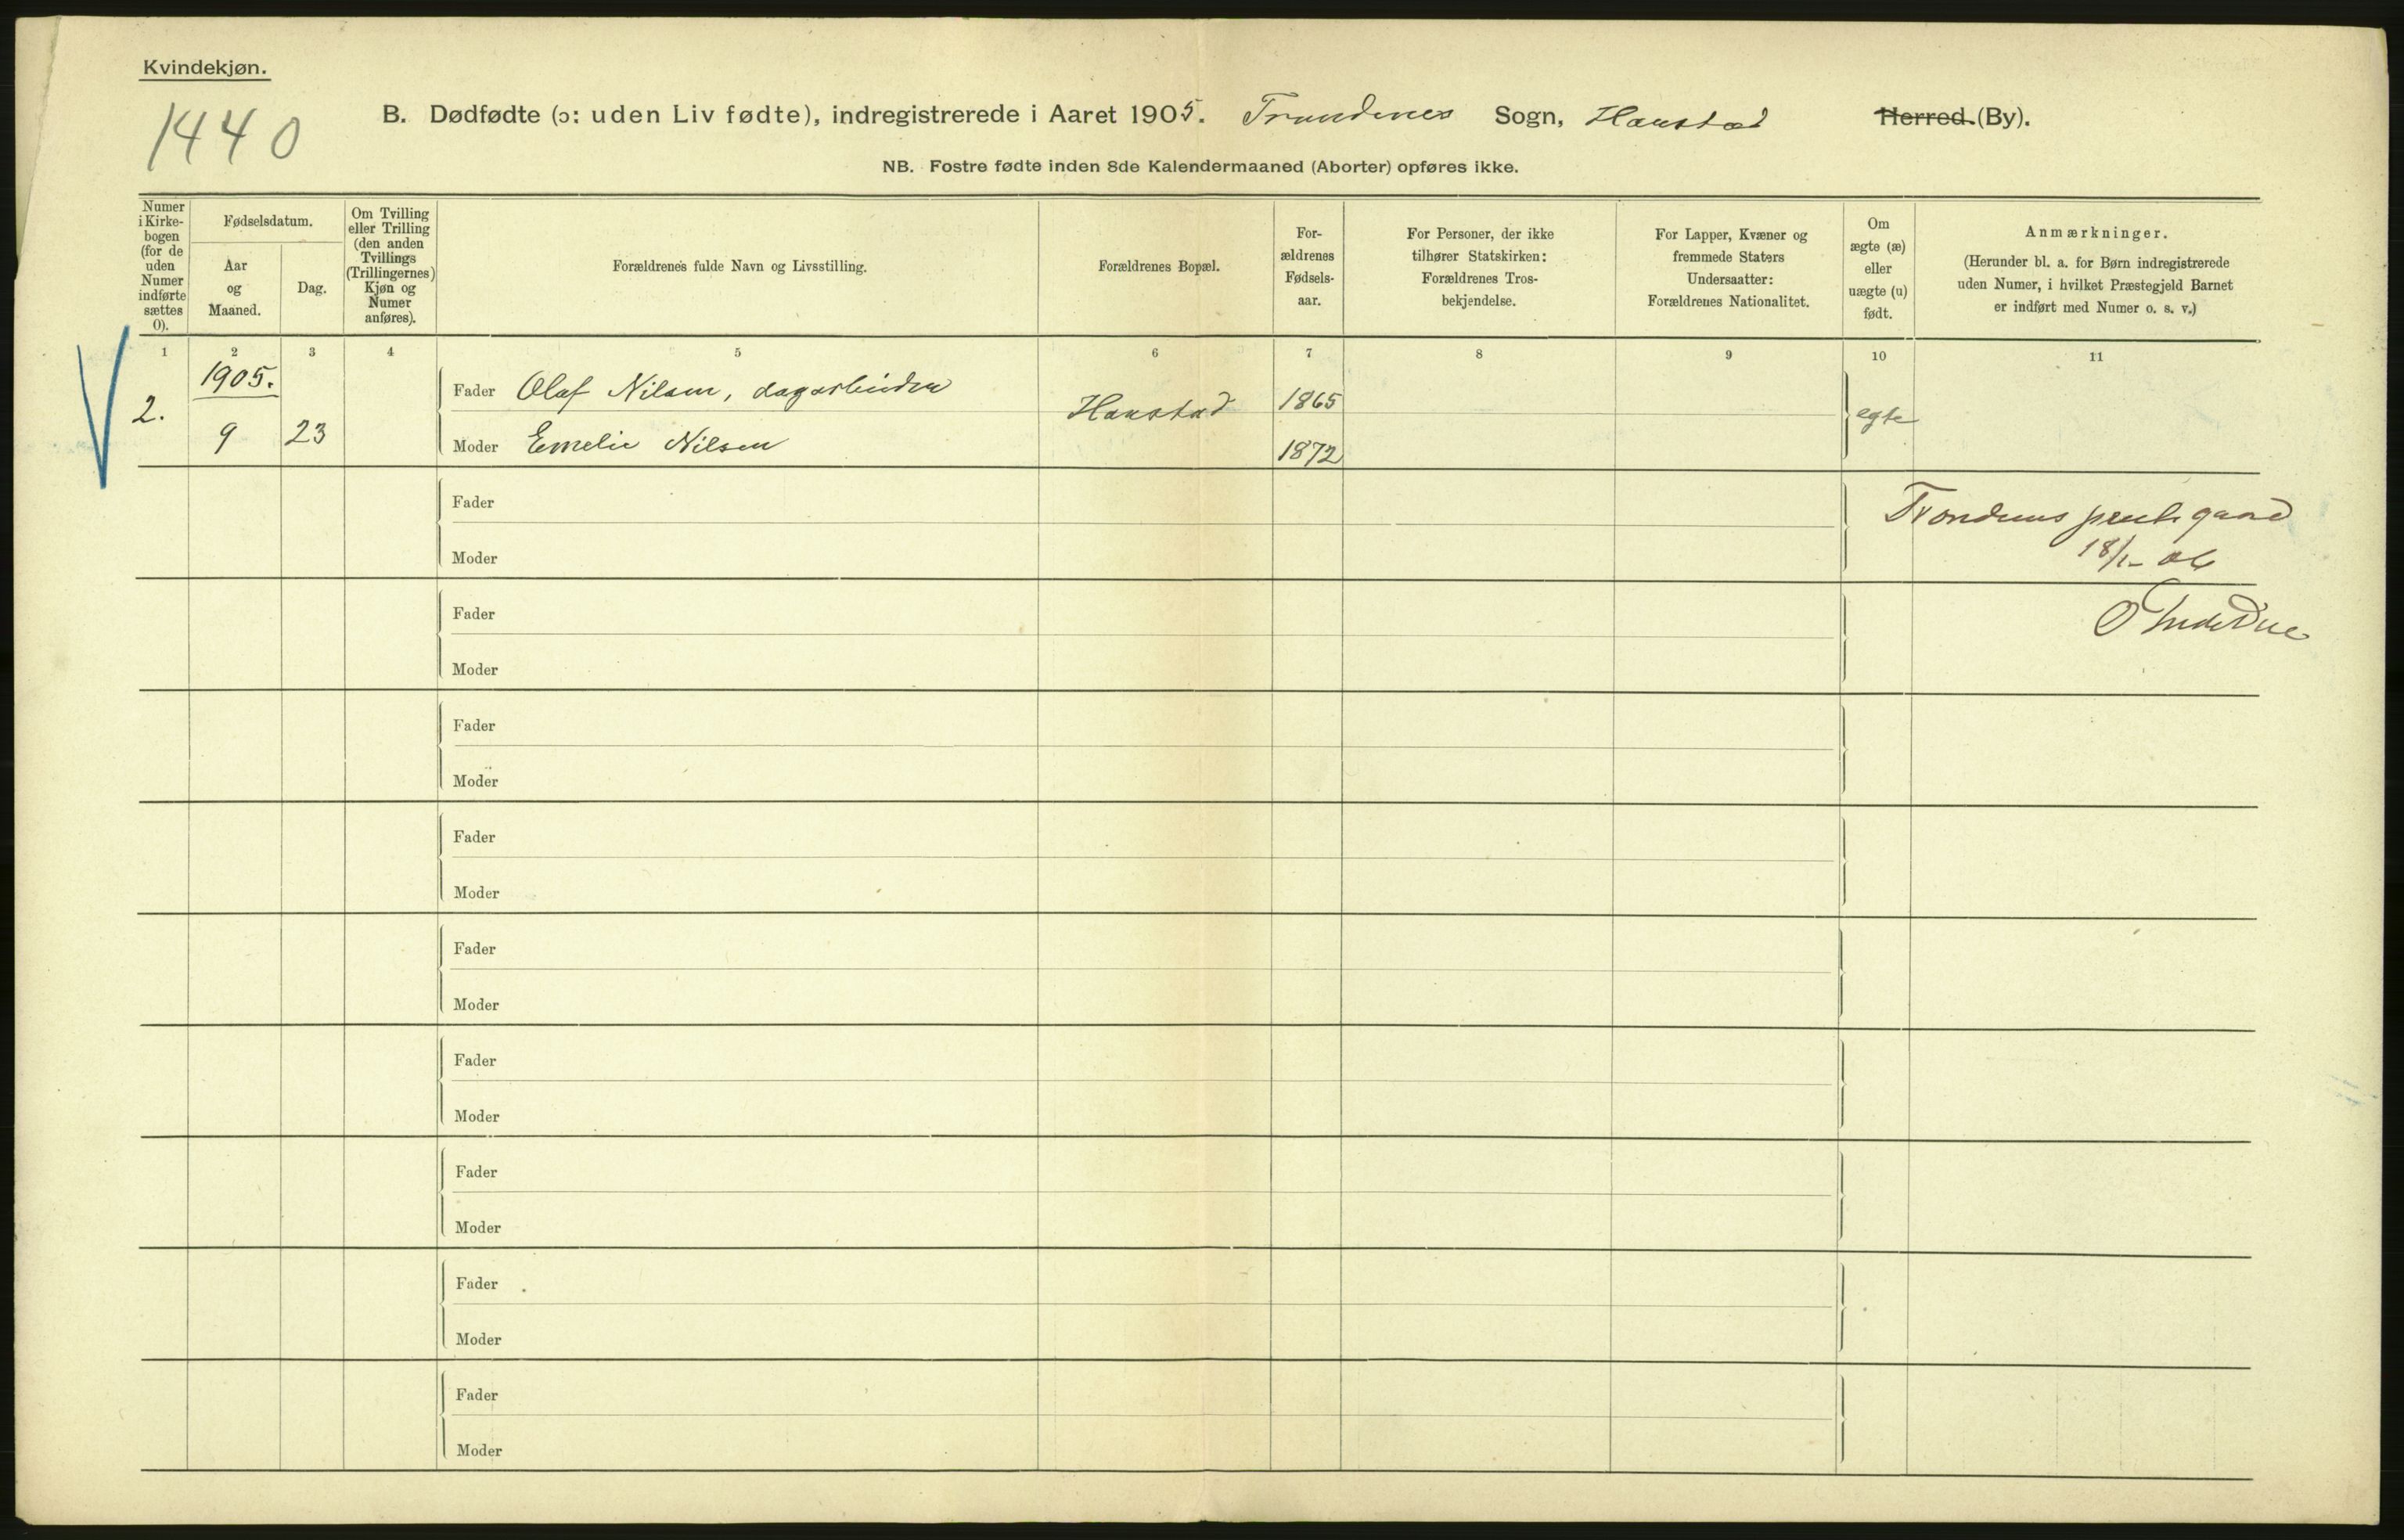 Kvindekjøn.
1440
B. Dødfødte (ɔ: uden Liv fødte), indregistrerede i Aaret 1905. Trondenes Sogn, Harstad Herred. (By).
NB. Fostre fødte inden 8de Kalendermaaned (Aborter) opføres ikke.
Numer
i Kirke-
bogen
(for de
uden
Numer
indførte
sættes
0).
Fødselsdatum.
Aar
og
Maaned.
Dag.
Om Tvilling
eller Trilling
(den anden
Tvillings
(Trillingernes)
Kjøn og
Numer
anføres).
Forældrenes fulde Navn og Livsstilling.
Forældrenes Bopæl.
For-
ældrenes
Fødsels-
aar.
For Personer, der ikke
tilhører Statskirken:
Forældrenes Tros-
bekjendelse.
For Lapper, Kvæner og
fremmede Staters
Undersaatter:
Forældrenes Nationalitet.
Om
ægte (æ)
eller
uægte (u)
født.
Anmærkninger.
(Herunder bl. a. for Børn indregistrerede
uden Numer, i hvilket Præstegjeld Barnet
er indført med Numer o. s. v.)
1 2 3 4 5 6 7 8 9 10 11
1905.
2.
9 23
Fader Olaf Nilsen, dagarbeider
Moder Emelie Nilsen
Harstad
1865
1872
egte
Fader
Moder
Trondenes prestegaard
18/1- 06
Fader
Moder
Fader
Moder
Fader
Moder
Fader
Moder
Fader
Moder
Fader
Moder
Fader
Moder
Fader
Moder